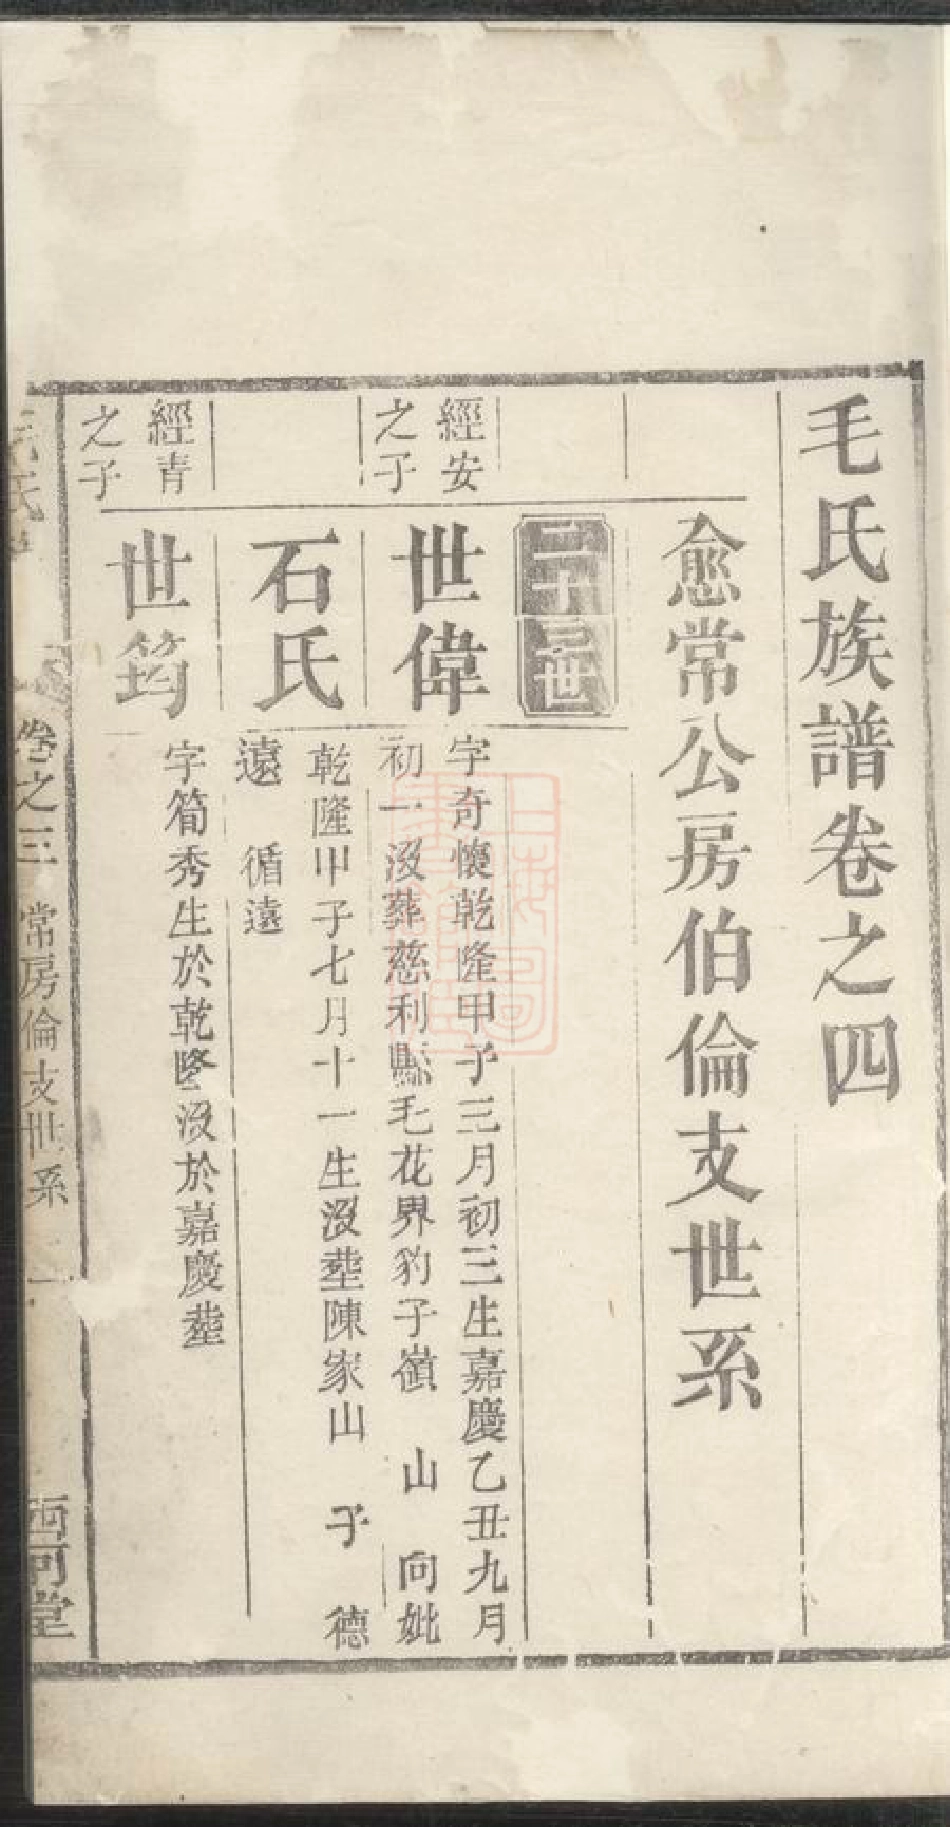 毛氏族譜卷之四
愈常公房伯倫支世系
二十三世
經安
之子
世偉
字奇懷乾隆甲子三月初三生嘉慶乙丑九月
初一沒葬慈利縣毛花界豹子嶺 山 向妣
石氏
乾隆甲子七月十一生沒塟陳家山 子 德
遠 循遠
經青
之子
世筠
字筍秀生於乾隆沒於嘉慶塟
卷之三 常房倫支世系 一 西河堂